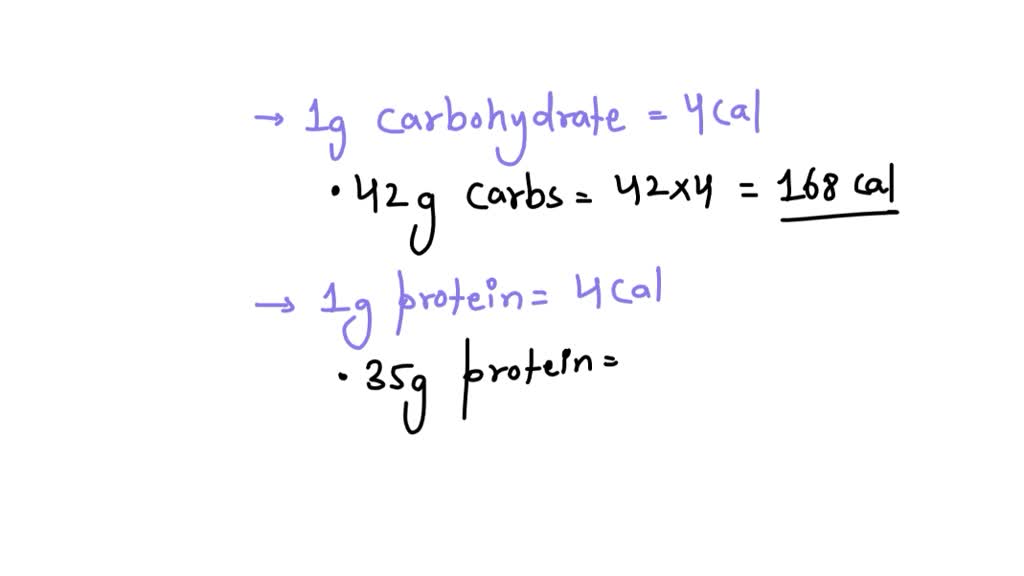 → 1g carbohydrate = 4 Cal
• 42g carbs = 42×4 = 168 cal
→ 1g protein = 4 Cal
• 35g protein =